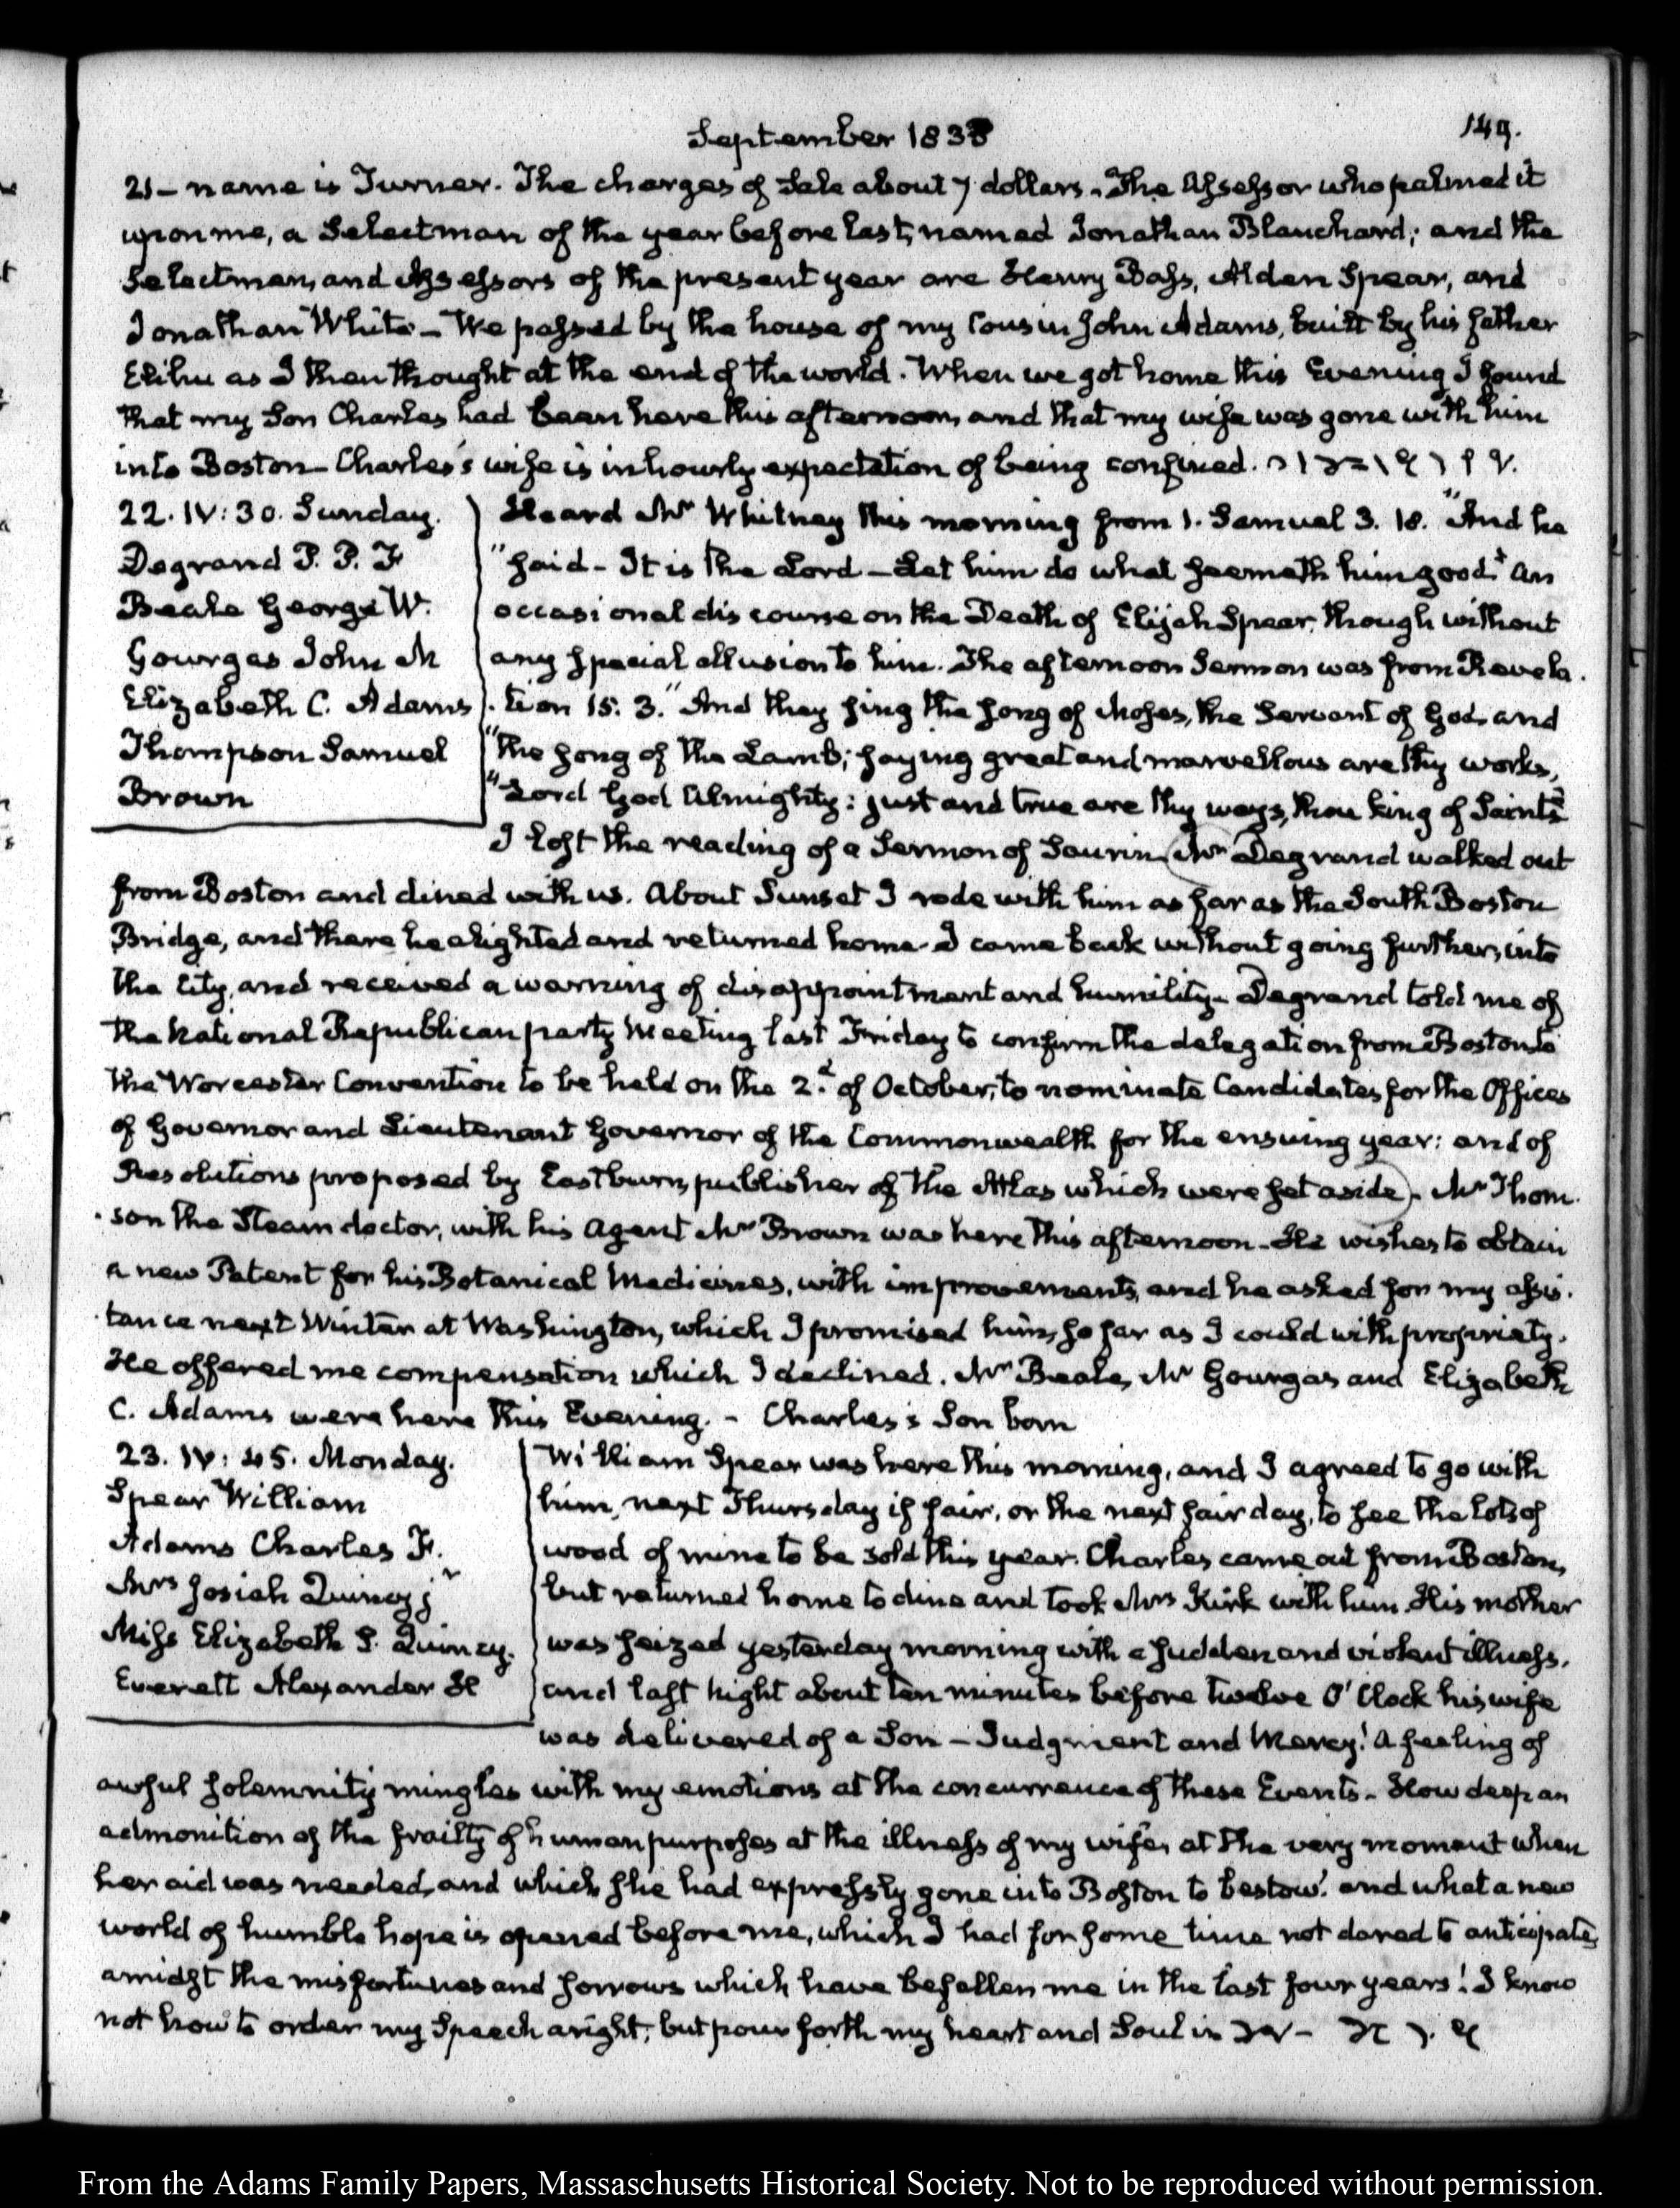 September 1833
149.
21 – name is Turner. The charges of Sale about 7 dollars. The Assessor who palmed it
upon me, a Selectman of the year before last, named Jonathan Blanchard; and the
Selectmen, and Assessors of the present year are Henry Bass, Alden Spear, and
Jonathan White – We passed by the house of my Cousin John Adams, built by his father
Elihu as I then thought at the end of the world. When we got home this Evening I found
that my Son Charles had been here this afternoon, and that my wife was gone with him
into Boston – Charles's wife is in hourly expectation of being confined.
22. IV: 30. Sunday.
Degrand P. P. F
Beale George W.
Gourgas John M
Elizabeth C. Adams
Thompson Samuel
Brown
Heard Mr Whitney this morning from 1. Samuel 3. 18. "And he
"said – It is the Lord – Let him do what seemeth him good." An
occasional discourse on the Death of Elijah Spear, though without
any special allusion to him. The afternoon Sermon was from Revela-
-tion 15. 3. "And they sing the song of Moses, the Servant of God, and
"the song of the Lamb; saying great and marvellous are thy works,
"Lord God Almighty: just and true are thy ways, thou king of Saints"
I lost the reading of a Sermon of Saurin (Mr Degrand walked out
from Boston and dined with us. About Sunset I rode with him as far as the South Boston
Bridge, and there he alighted and returned home. I came back without going further, into
the City, and received a warning of disappointment and humility – Degrand told me of
the National Republican party Meeting last Friday to confirm the delegation from Boston to
the Worcester Convention to be held on the 2.d of October, to nominate Candidates for the Offices
of Governor and Lieutenant Governor of the Commonwealth for the ensuing year: and of
Resolutions proposed by Eastburn, publisher of the Atlas which were set aside). Mr Thom-
-son the Steam doctor, with his Agent Mr Brown was here this afternoon. He wishes to obtain
a new Patent for his Botanical Medicines, with improvements, and he asked for my assis-
-tance next Winter at Washington, which I promised him, so far as I could with propriety.
He offered me compensation which I declined. Mr Beale, Mr Gourgas and Elizabeth
C. Adams were here this Evening. – Charles's Son born
23. IV: 45. Monday.
Spear William
Adams Charles F.
Mrs Josiah Quincy jr
Miss Elizabeth S. Quincy.
Everett Alexander H
William Spear was here this morning, and I agreed to go with
him, next Thursday if fair, or the next fair day, to see the lots of
wood of mine to be sold this year. Charles came out from Boston,
but returned home to dine and took Mrs Kirk with him. His mother
was seized yesterday morning with a sudden and violent illness,
and last night about ten minutes before twelve O'Clock his wife
was delivered of a Son – Judgment and Mercy! A feeling of
awful solemnity mingles with my emotions at the concurrence of these Events. How deep an
admonition of the frailty of human purposes at the illness of my wife, at the very moment when
her aid was needed, and which she had expressly gone into Boston to bestow! and what a new
world of humble hope is opened before me, which I had for some time not dared to anticipate,
amidst the misfortunes and sorrows which have befallen me in the last four years! I know
not how to order my Speech aright, but pour forth my heart and Soul in
From the Adams Family Papers, Massachusetts Historical Society. Not to be reproduced without permission.